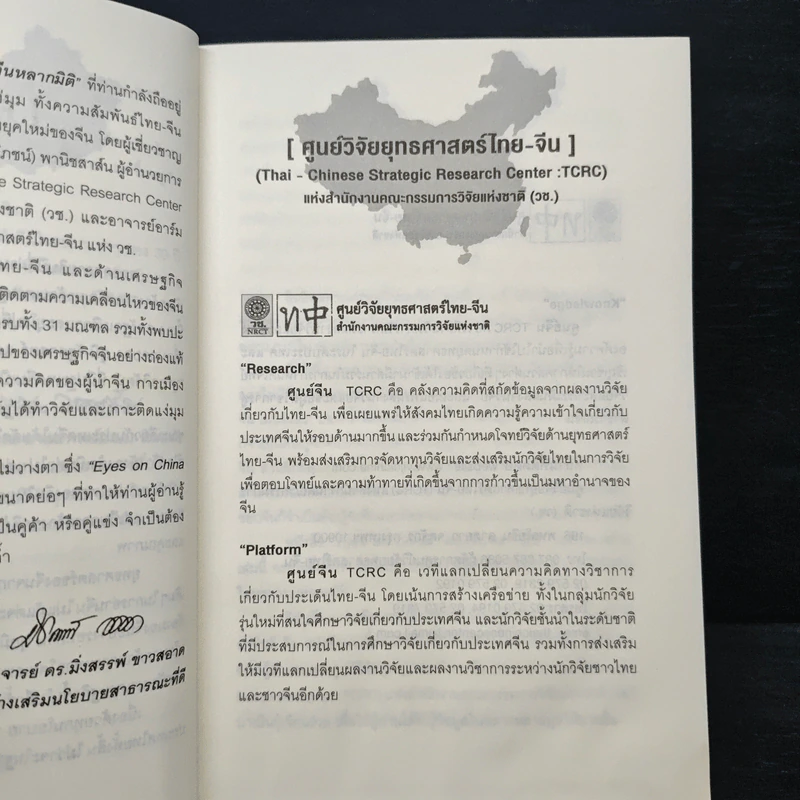 ีนหลากมิติ" ที่ท่านกำลังถืออยู่
มุม ทั้งความสัมพันธ์ไทย-จีน
ยุคใหม่ของจีน โดยผู้เชี่ยวชาญ
พานิชสาส์น ผู้อำนวยการ
Strategic Research Center
งชาติ (วช.) และอาจารย์อาร์ม
าสตร์ไทย-จีน แห่ง วช.
ทย-จีน และด้านเศรษฐกิจ
ติดตามความเคลื่อนไหวของจีน
รบทั้ง 31 มณฑล รวมทั้งพบปะ
ปของเศรษฐกิจจีนอย่างถ่องแท้
ความคิดของผู้นำจีน การเมือง
ได้ทำวิจัยและเกาะติดแง่มุม
ไม่วางตา ซึ่ง "Eyes on China
ขนาดย่อๆ ที่ทำให้ท่านผู้อ่านรู้
เป็นคู่ค้า หรือคู่แข่ง จำเป็นต้อง
จารย์ ดร.มิ่งสรรพ์ ขาวสอาด
างเสริมนโยบายสาธารณะที่ดี
[ ศูนย์วิจัยยุทธศาสตร์ไทย-จีน ]
(Thai - Chinese Strategic Research Center :TCRC)
แห่งสำนักงานคณะกรรมการวิจัยแห่งชาติ (วช.)
วช.
NRCT
ท中
ศูนย์วิจัยยุทธศาสตร์ไทย-จีน
สำนักงานคณะกรรมการวิจัยแห่งชาติ
"Research"
ศูนย์จีน TCRC คือ คลังความคิดที่สกัดข้อมูลจากผลงานวิจัย
เกี่ยวกับไทย-จีน เพื่อเผยแพร่ให้สังคมไทยเกิดความรู้ความเข้าใจเกี่ยวกับ
ประเทศจีนให้รอบด้านมากขึ้น และร่วมกันกำหนดโจทย์วิจัยด้านยุทธศาสตร์
ไทย-จีน พร้อมส่งเสริมการจัดหาทุนวิจัยและส่งเสริมนักวิจัยไทยในการวิจัย
เพื่อตอบโจทย์และความท้าทายที่เกิดขึ้นจากการก้าวขึ้นเป็นมหาอำนาจของ
จีน
"Platform"
ศูนย์จีน TCRC คือ เวทีแลกเปลี่ยนความคิดทางวิชาการ
เกี่ยวกับประเด็นไทย-จีน โดยเน้นการสร้างเครือข่าย ทั้งในกลุ่มนักวิจัย
รุ่นใหม่ที่สนใจศึกษาวิจัยเกี่ยวกับประเทศจีน และนักวิจัยชั้นนำในระดับชาติ
ที่มีประสบการณ์ในการศึกษาวิจัยเกี่ยวกับประเทศจีน รวมทั้งการส่งเสริม
ให้มีเวทีแลกเปลี่ยนผลงานวิจัยและผลงานวิชาการระหว่างนักวิจัยชาวไทย
และชาวจีนอีกด้วย